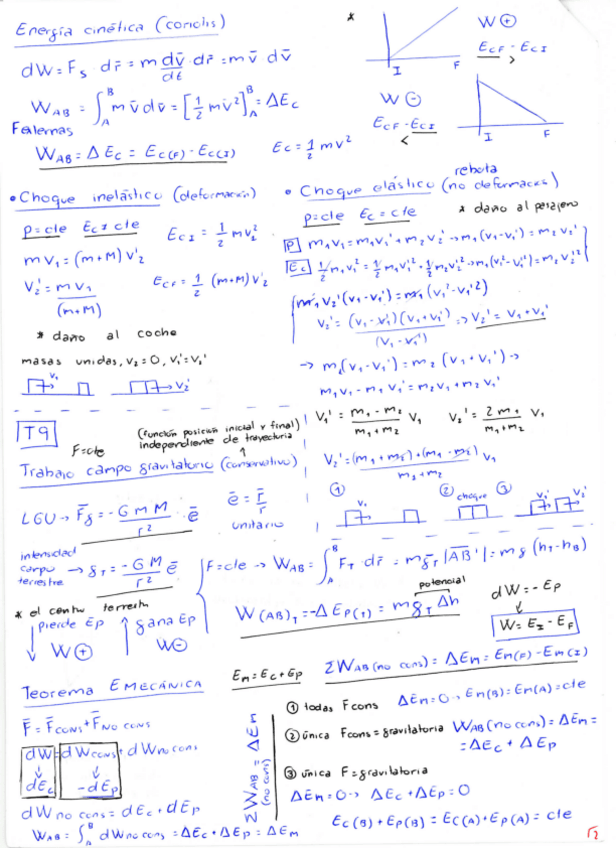 Energía cinética (coriolis)
dW = F_s dr̄ = m dv̄/dt · dr̄ = m v̄ dv̄
W_AB = ∫_A^B m v̄ dv̄ = [1/2 m v̄²]_A^B = ΔEc
Falemas
W_AB = ΔEc = Ec(F) - Ec(I)
Ec = 1/2 mv²
*
I F
W ⊕
E_CF - E_CI
>
W ⊖
E_CF - E_CI
<
I F
• Choque inelástico (deformación)
p = cte Ec ≠ cte
E_CI = 1/2 m v₁²
m V₁ = (m+M) V'₂
V₂' = m v₁ / (m+M)
E_CF = 1/2 (m+M) V'₂
* daño al coche
masas unidas, v₂ = 0, v₁' = v₂'
V₁ V₂'
rebota
• Choque elástico (no deformación)
p = cte Ec = cte
* daño al pasajero
P m₁v₁ = m₁v₁' + m₂v₂' → m₁(v₁-v₁') = m₂v₂'
Ec 1/2 m₁v₁² = 1/2 m₁v₁'² + 1/2 m₂v₂'² → m₁(v₁²-v₁'²) = m₂v₂'²
m₁ V₂'(v₁-v₁') = m₁(v₁²-v₁'2)
V₂' = (v₁-v₁')(v₁+v₁') / (v₁-v₁') => V₂' = v₁+v₁'
→ m₁(v₁-v₁') = m₂(v₁+v₁') →
m₁v₁ - m₁v₁' = m₂v₁ + m₂v₁'
V₁' = m₁-m₂ / m₁+m₂ V₁ V₂' = 2m₁ / m₁+m₂ V₁
V₂' = (m₁+m₂)+(m₁-m₂) / m₁+m₂ V₁
① ② choque ③
V₁ V₁' V₂'
T9
F = cte
(función posición inicial y final)
independiente de trayectoria
Trabajo campo gravitatorio (conservativo)
LGU → F̄g = -GmM / r² · ē
ē = r̄/r
unitario
intensidad
campo → g_T = -GM / r² ē
terrestre
F = cte → W_AB = ∫_A^B F_T dr̄ = m ḡ_T |AB'| = mg (h_T - h_B)
* el centro terrestre
pierde Ep gana Ep
W ⊕ W ⊖
potencial
W(AB)_T = -ΔEp(T) = m g_T Δh
dW = -Ep
W = E_I - E_F
Teorema EMECÁNICA
Em = Ec + Ep
ΣW_AB (no cons) = ΔEm = Em(F) - Em(I)
F̄ = F̄cons + F̄no cons
dW = dWcons + dWno cons
dEc -dEp
dW no cons = dEc + dEp
W_AB = ∫_A^B dW no cons = ΔEc + ΔEp = ΔEm
ΣW_AB = ΔEm
(no cons)
① todas Fcons ΔEm = 0 → Em(B) = Em(A) = cte
② única Fcons = gravitatoria W_AB (no cons) = ΔEm =
= ΔEc + ΔEp
③ única F = gravitatoria
ΔEm = 0 → ΔEc + ΔEp = 0
Ec(B) + Ep(B) = Ec(A) + Ep(A) = cte